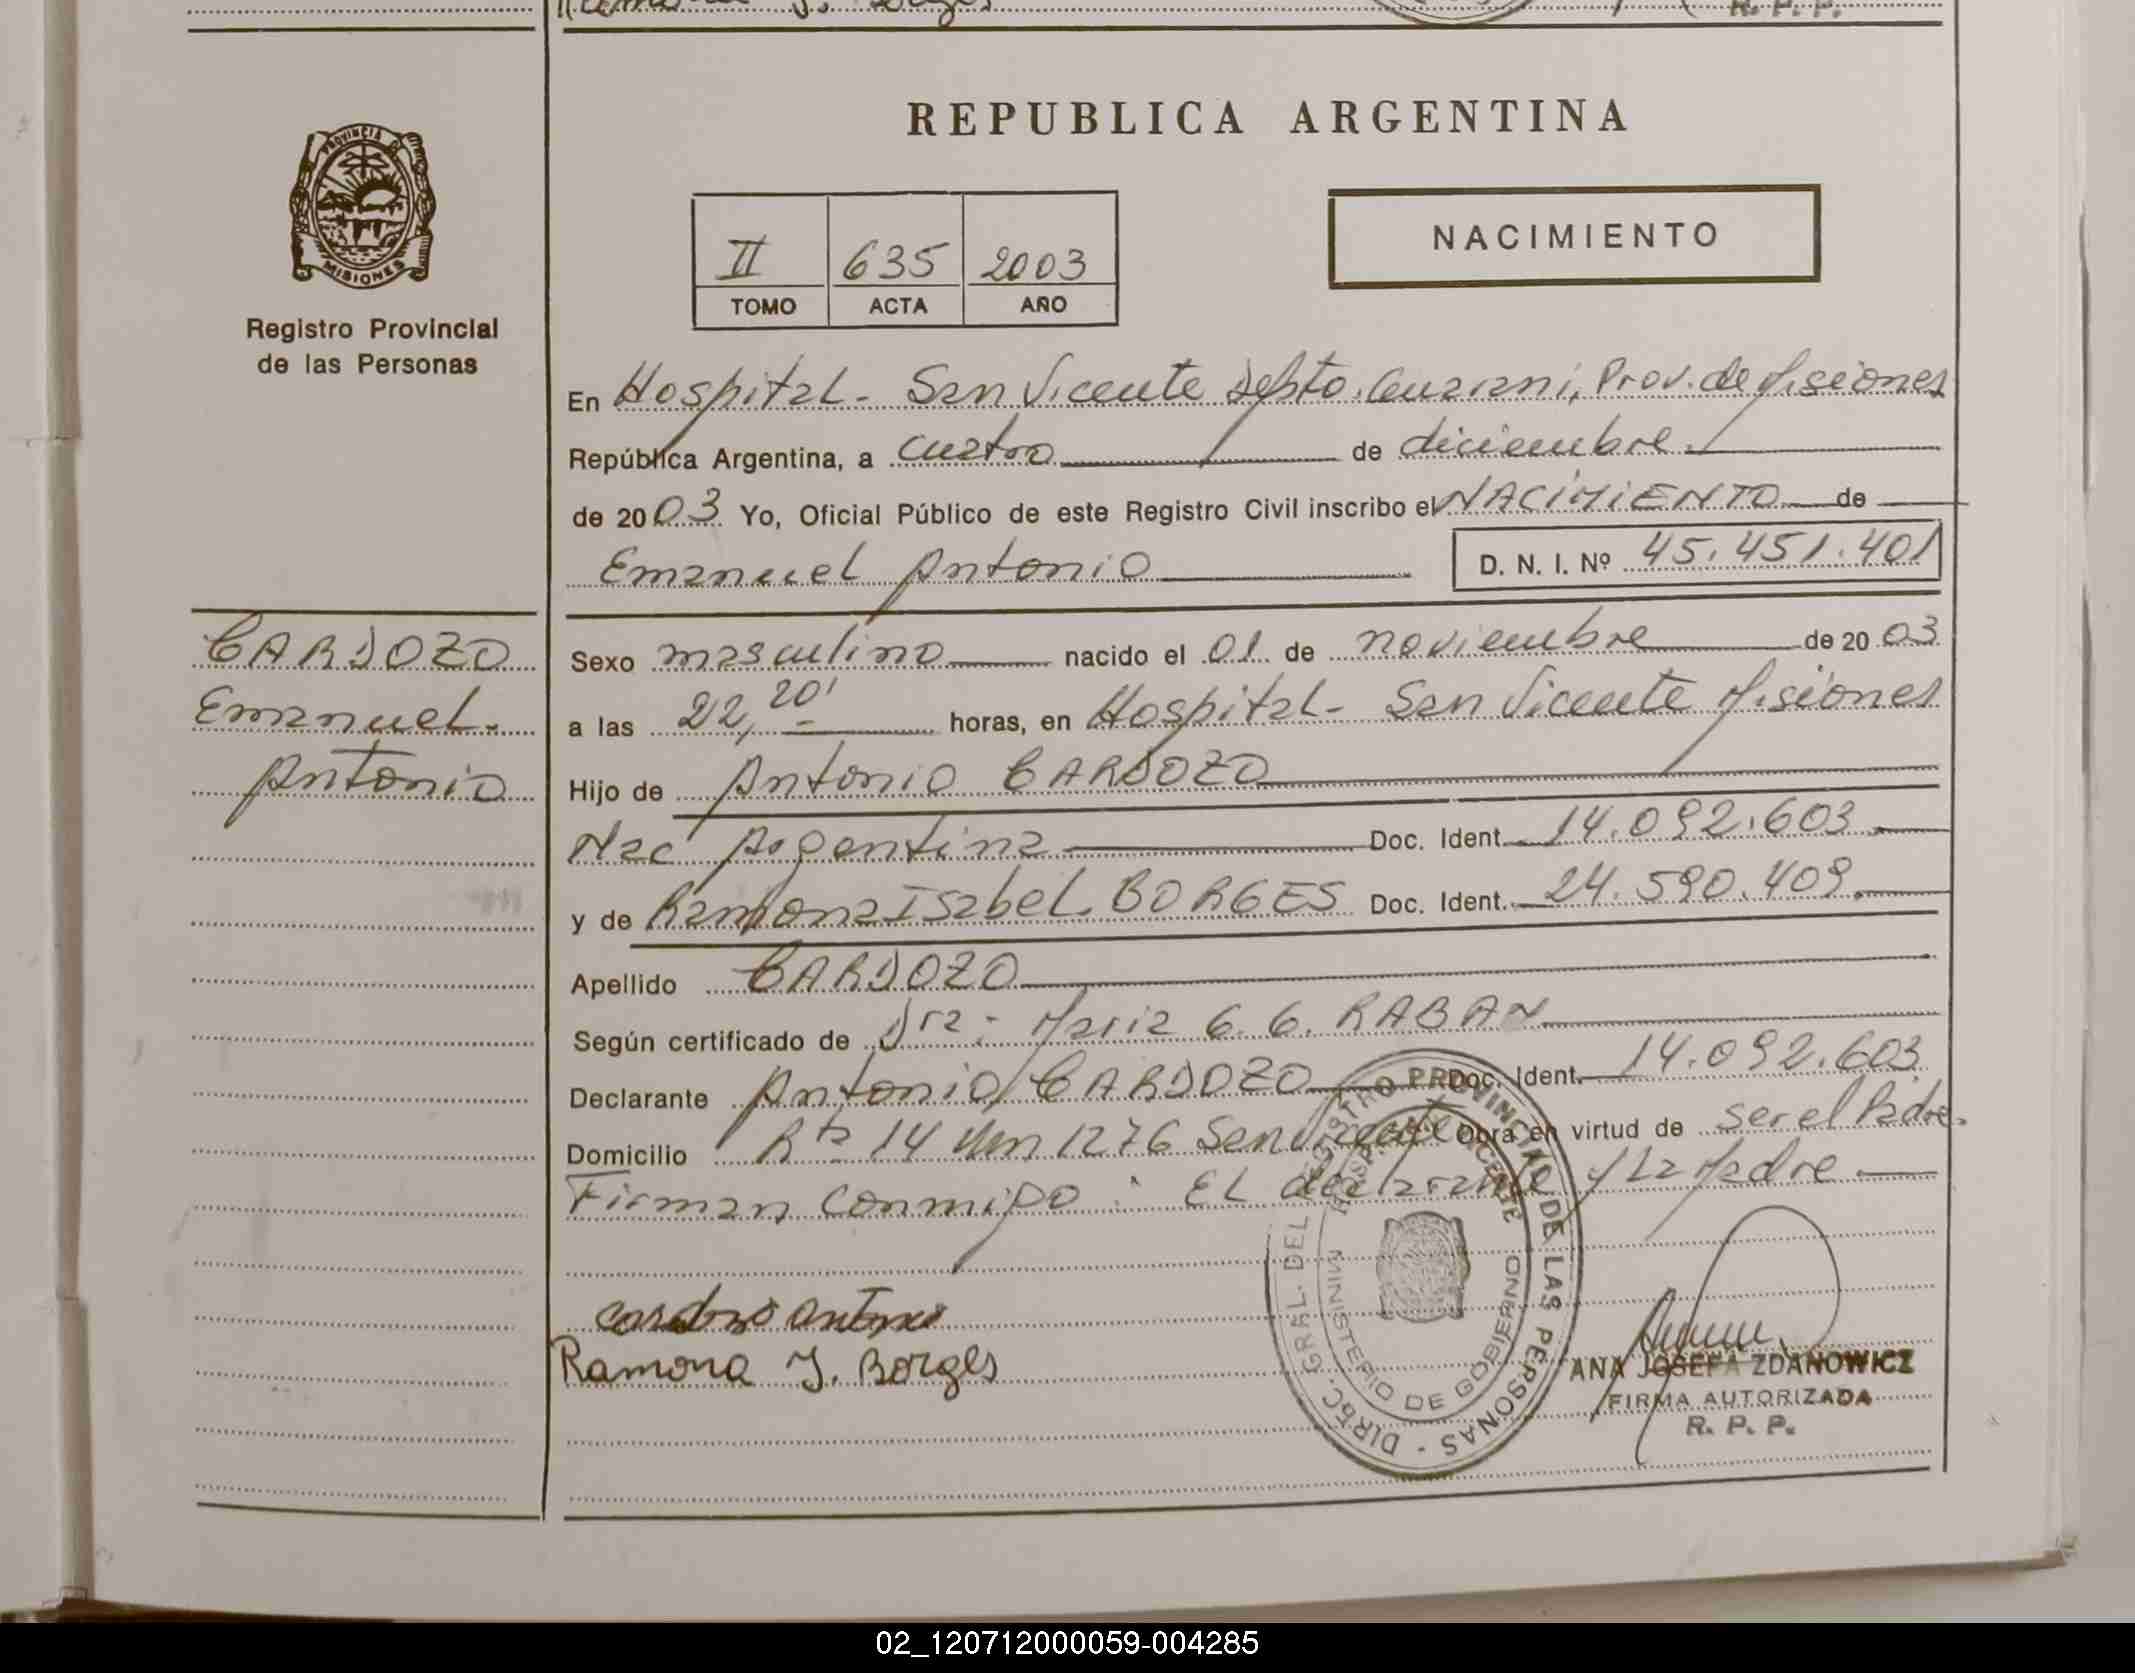 REPUBLICA ARGENTINA
PROVINCIA DE
MISIONES
Registro Provincial
de las Personas
II 635 2003
TOMO ACTA AÑO
NACIMIENTO
En Hospital - San Vicente Depto. Guarani, Prov. de Misiones
República Argentina, a cuatro de diciembre
de 2003 Yo, Oficial Público de este Registro Civil inscribo el NACIMIENTO de
Emanuel Antonio D. N. I. Nº 45.451.401
CARDOZO
Emanuel
Antonio
Sexo masculino nacido el 01 de noviembre de 2003
a las 22,20' horas, en Hospital - San Vicente Misiones
Hijo de Antonio CARDOZO
Nac Argentina Doc. Ident. 14.092.603
y de Ramona Isabel BORGES Doc. Ident. 24.590.409
Apellido CARDOZO
Según certificado de Dra: Maria G. G. RABAN
Declarante Antonio CARDOZO Doc. Ident. 14.092.603
Domicilio Rta 14 Km 1276 San Vicente Obra en virtud de ser el Padre
Firman conmigo: El declarante y La Madre
Cardozo Antonio
Ramona I. Borges
DIREC. GRAL. DEL REGISTRO PROVINCIAL DE LAS PERSONAS
MINISTERIO DE GOBIERNO
ANA JOSEFA ZDANOWICZ
FIRMA AUTORIZADA
R. P. P.
02_120712000059-004285